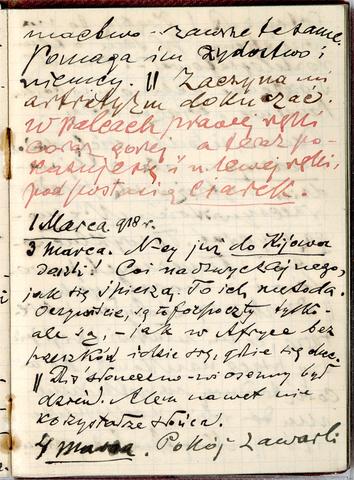 mactwo – zawsze te same.
Pomaga im żydostwo i
niemcy. || Zaczyna mi
artretyzm dokuczać.
W palcach prawej ręki
coraz gorzej a teraz po-
kazuje się i u lewej ręki,
pod postacią czarek.
1 Marca 918 r.
3 marca. N-cy już do Kijowa
doszli! Coś nadzwyczajnego,
jak się śpieszą. To ich metoda.
Oczywiście, są to forpoczty tylko
ale są, – jak w Afryce bez
przeszkód idzie się, gdzie się chce.
|| Dziś słoneczno-wiosenny był
dzień. Alem nawet nie
korzystała słońca.
4 marca. Pokój zawarli